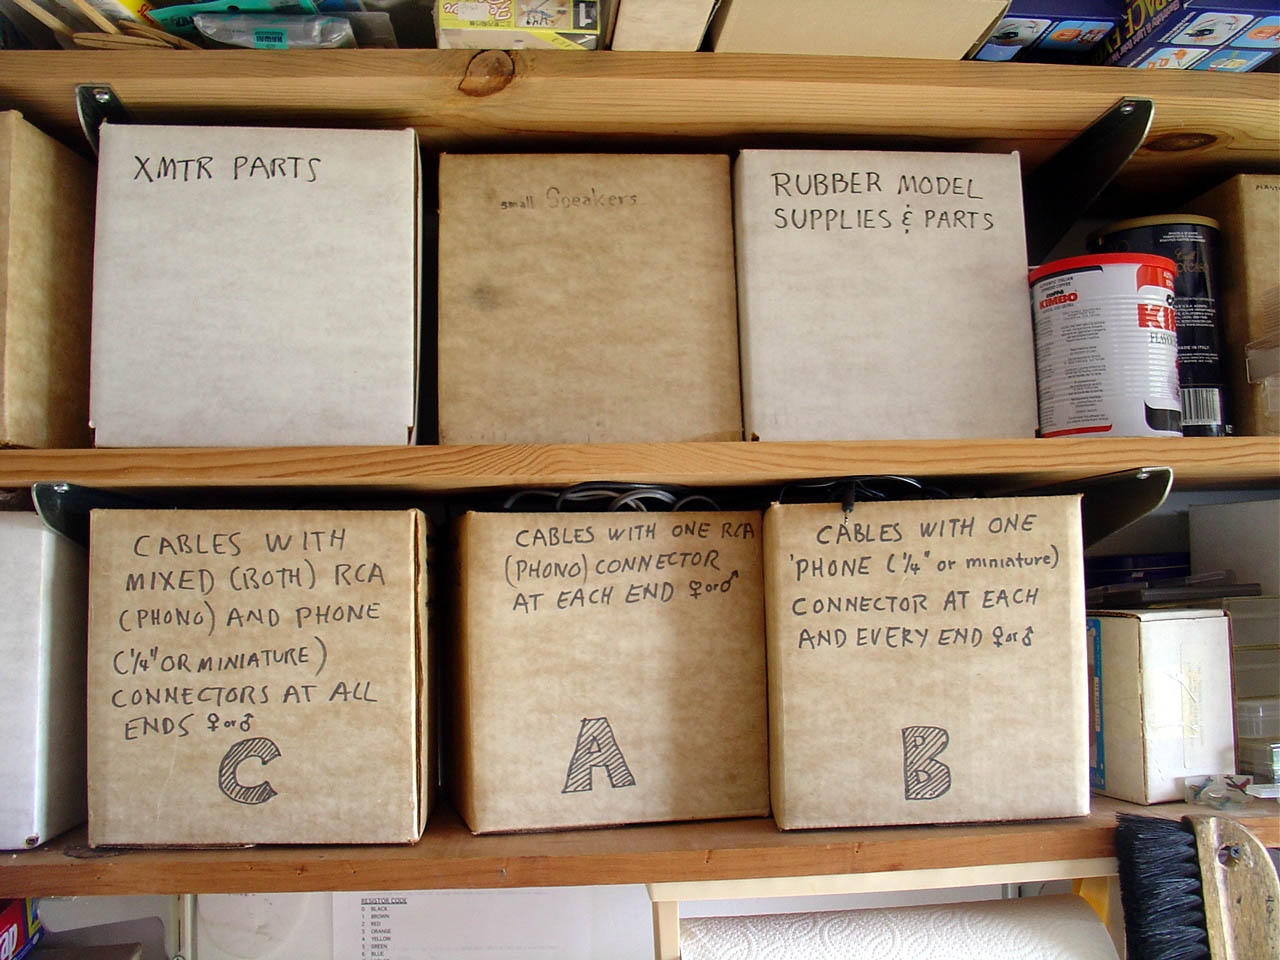 XMTR PARTS
small Speakers
RUBBER MODEL
SUPPLIES & PARTS
KIMBO
MADE IN ITALY
CABLES WITH
MIXED (BOTH) RCA
(PHONO) AND PHONE
(1/4" OR MINIATURE)
CONNECTORS AT ALL
ENDS ♀ or ♂
C
CABLES WITH ONE RCA
(PHONO) CONNECTOR
AT EACH END ♀ or ♂
A
CABLES WITH ONE
'PHONE (1/4" or miniature)
CONNECTOR AT EACH
AND EVERY END ♀ or ♂
B
RESISTOR CODE
0 BLACK
1 BROWN
2 RED
3 ORANGE
4 YELLOW
5 GREEN
6 BLUE